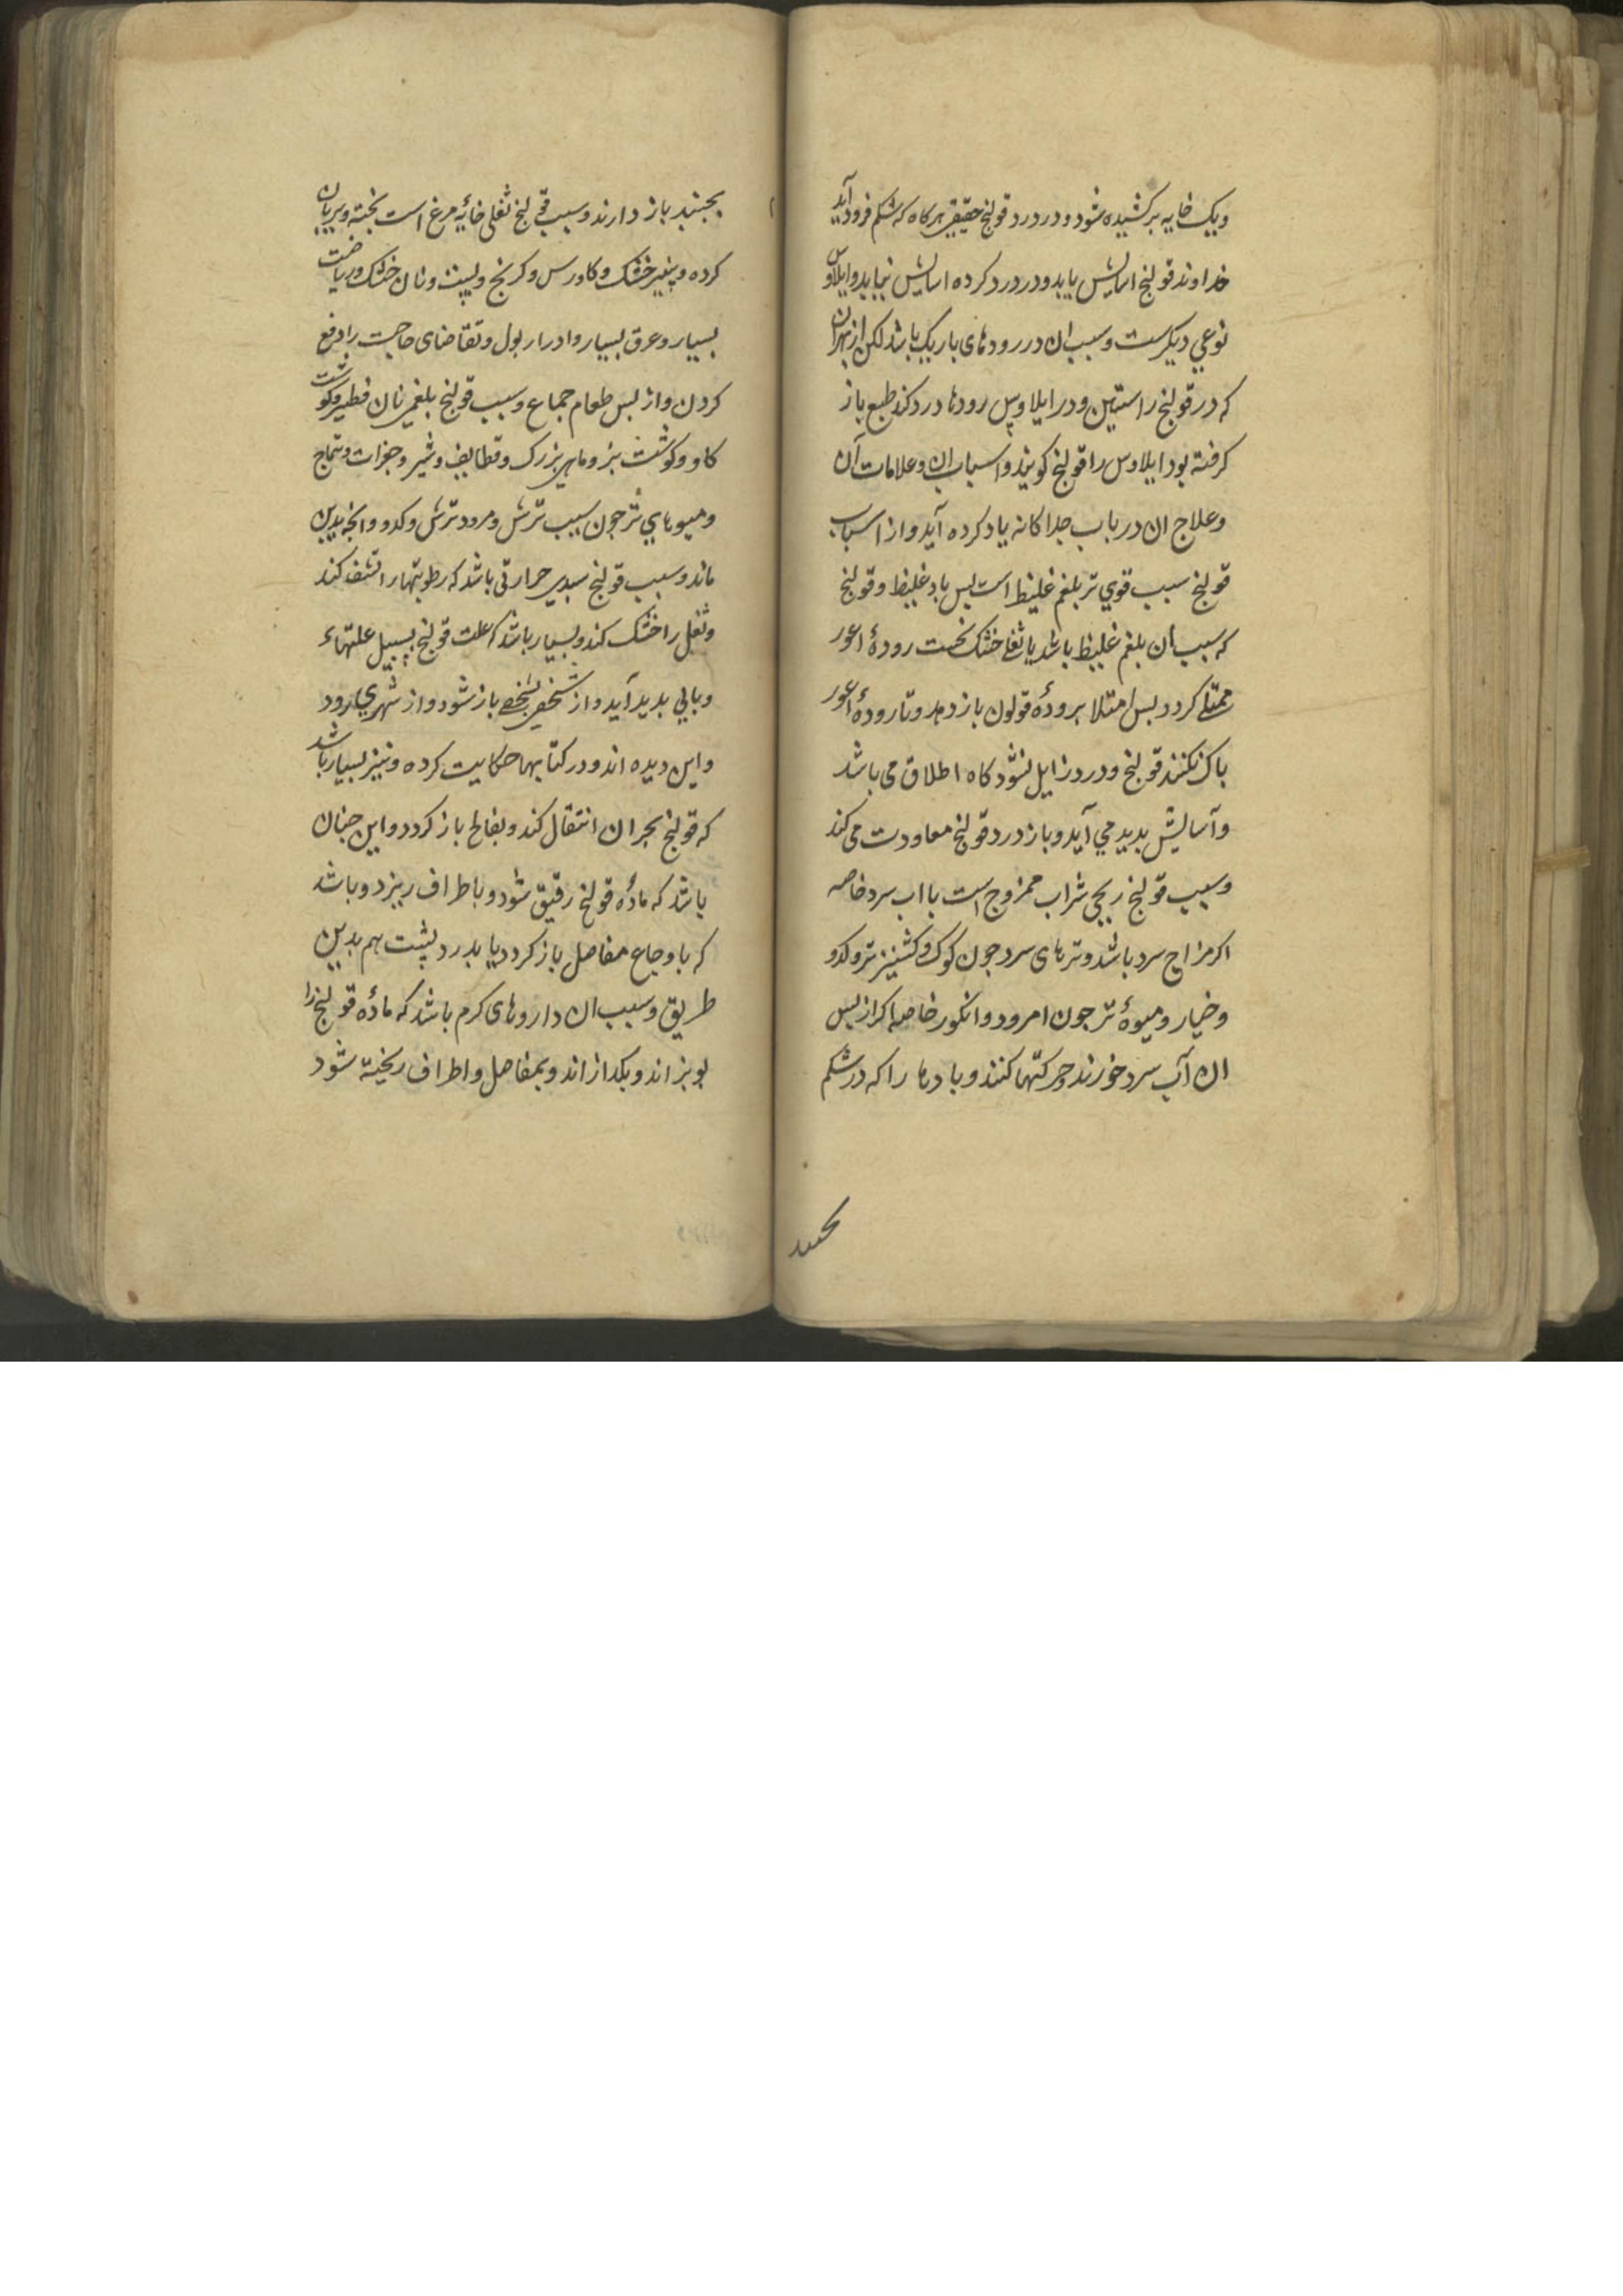 ویک خایه برکشیده شود و در درد قولنج حقیقی هرکاه که شکم فرود آید
خداوند قولنج اسایش یابد و در درد کرده اسایش نیابد و ایلاوس
نوعی دیکرست و سبب ان در رودهای باریک باشد لکن از بهر ان
که در قولنج راستین و در ایلاوس رودها درد کند طبع باز
کرفته بود ایلاوس را قولنج کویند و اسباب ان و علامات آن
و علاج ان در باب جداکانه یاد کرده آید و از اسباب
قولنج سبب قوی تر بلغم غلیظ است پس باد غلیظ و قولنج
که سبب ان بلغم غلیظ باشد یا ثفل خشک نخست رودۀ اعور
ممتلی کردد پس امتلا برودۀ قولون باز دهد و تا رودۀ اعور
پاک نکنند قولنج و درد زایل نشود کاه اطلاق می باشد
و آسایش پدید می آید و باز درد قولنج معاودت می کند
و سبب قولنج ریحی شراب ممزوج است با اب سرد خاصه
اکر مزاج سرد باشد و ترهای سرد جون کوک و کشنیز تر و کدو
و خیار و میوۀ تر جون امرود و انکور خاصه اکر از پس
ان آب سرد خورند و حرکتها کنند و بادها را که در شکم
بجنبد
بجنبد باز دارند و سبب قولنج ثفلی خایۀ مرغ است پخته و بریان
کرده و پنیر خشک و کاورس و کرنج و پست و نان خشک و ریاضت
بسیار و عرق بسیار و ادرار بول و تقاضای حاجت را دفع
کردن و از پس طعام جماع و سبب قولنج بلغمی نان فطیر و کوشت
کاو و کوشت بز و ماهی بزرک و قطایف و شیر و جغرات و تتماج
و میوهای تر جون سیب ترش و مرود ترش و کدو و انچه بدین
ماند و سبب قولنج سددی حرارتی باشد که رطوبتها را نشف کند
و ثفل را خشک کند و بسیار باشد که علت قولنج بسبیل علتهاء
وبایی پدید آید و از شخصی بشخصی باز شود و از شهری رود
و این دیده اند و در کتابها حکایت کرده و نیز بسیار باشد
که قولنج بحران انتقال کند و بفالج باز کردد و این جنان
باشد که مادۀ قولنج رقیق شود و باطراف ریزد و باشد
که باوجاع مفاصل باز کردد یا بدرد پشت هم بدین
طریق و سبب ان داروهای کرم باشد که مادۀ قولنج را
بپزاند و بکدازاند و بمفاصل و اطراف ریخته شود